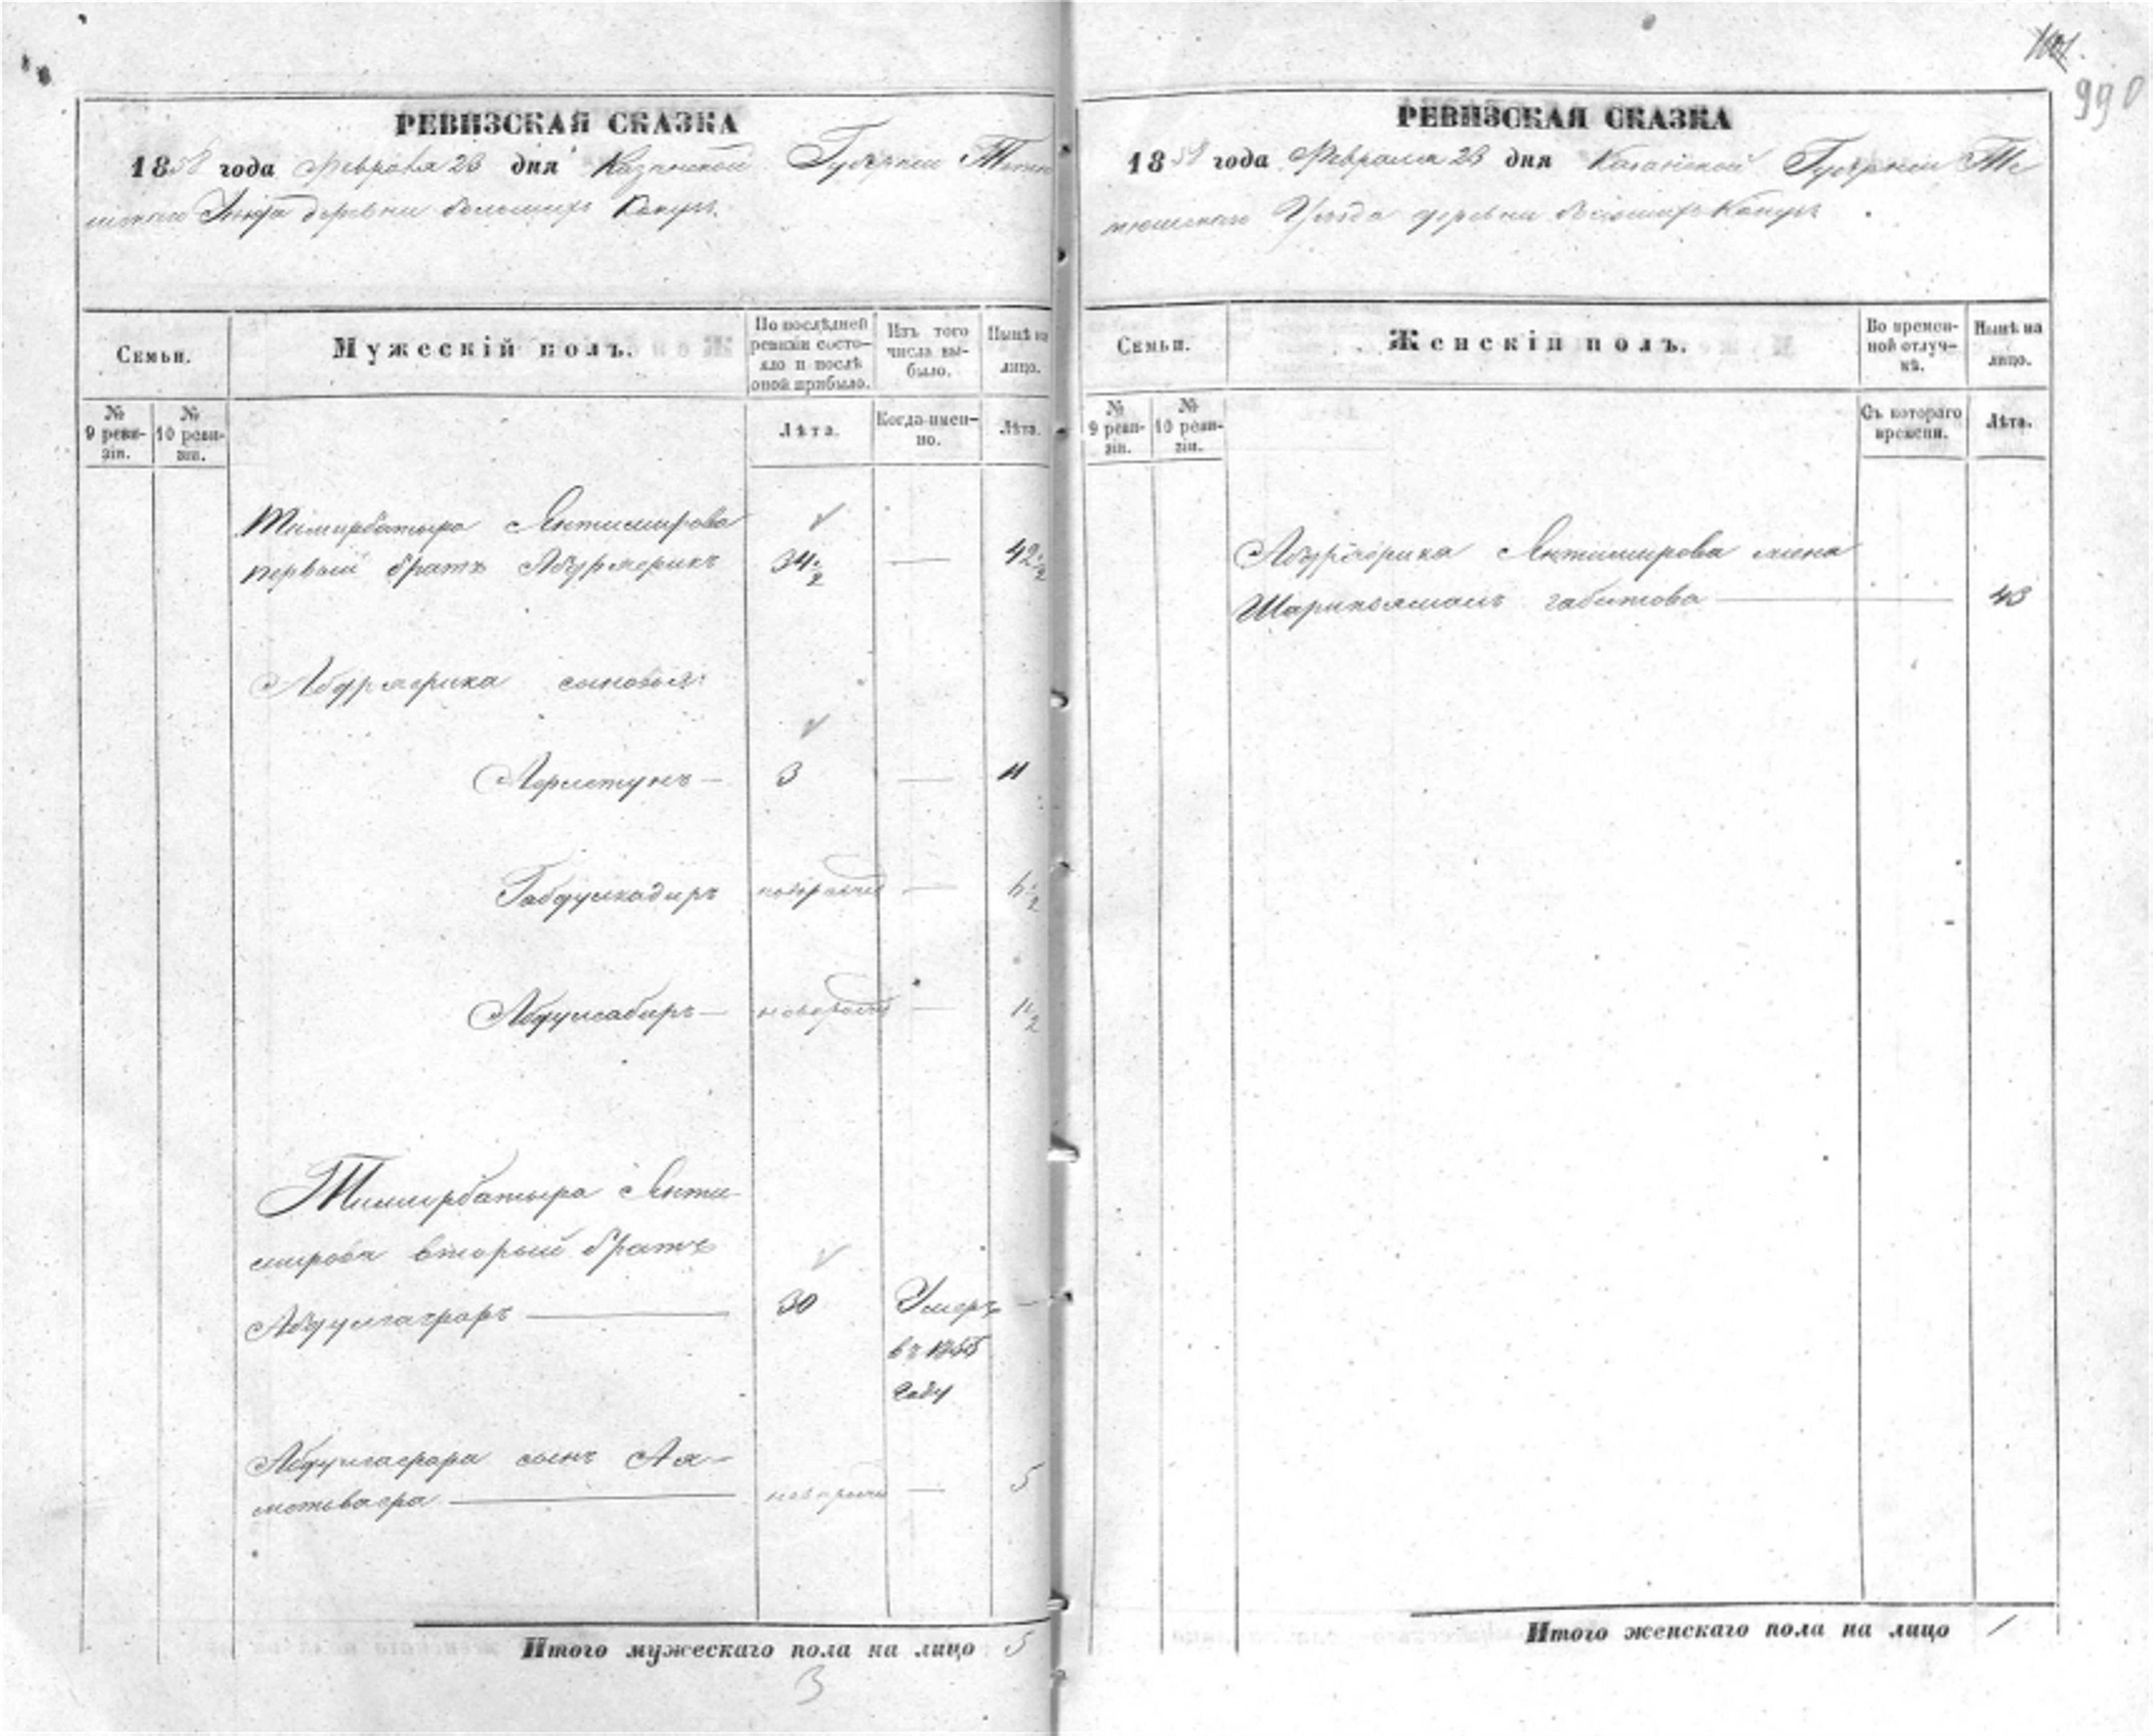 990
РЕВИЗСКАЯ СКАЗКА
1858 года Февраля 23 дня Казанской Губерніи Тетю
шскаго Уезда деревни большихъ
Семьи.
Мужескій полъ.
По послѣдней ревизіи состо-
яло и послѣ оной прибыло.
Изъ того числа вы-
было.
Нынѣ на лицо.
№ 9 реви-
зіи.
№ 10 реви-
зіи.
Лѣта.
Когда имен-
но.
Лѣта.
Тимирбатыра Янтимирова
первый братъ 34 1/2 — 42 1/2
сыновья:
3 — 11
Габдулкадиръ новорожде — 6 1/2
Абдулсабиръ — новорожде — 1 1/2
Тимирбатыра Янти-
мирова вторый братъ
Абдулгафаръ — 30 Умеръ —
въ 1855
году
Абдулгафара сынъ
— новорожде — 5
Итого мужескаго пола на лицо 5
3
РЕВИЗСКАЯ СКАЗКА
1858 года Февраля 23 дня Казанской Губерніи Те
тюшскаго Уезда деревни большихъ
Семьи.
Женскій полъ.
Во времен-
ной отлуч-
кѣ.
Нынѣ на лицо.
№ 9 реви-
зіи.
№ 10 реви-
зіи.
Съ котораго времени.
Лѣта.
Янтимирова жена
габитова — 43
Итого женскаго пола на лицо 1